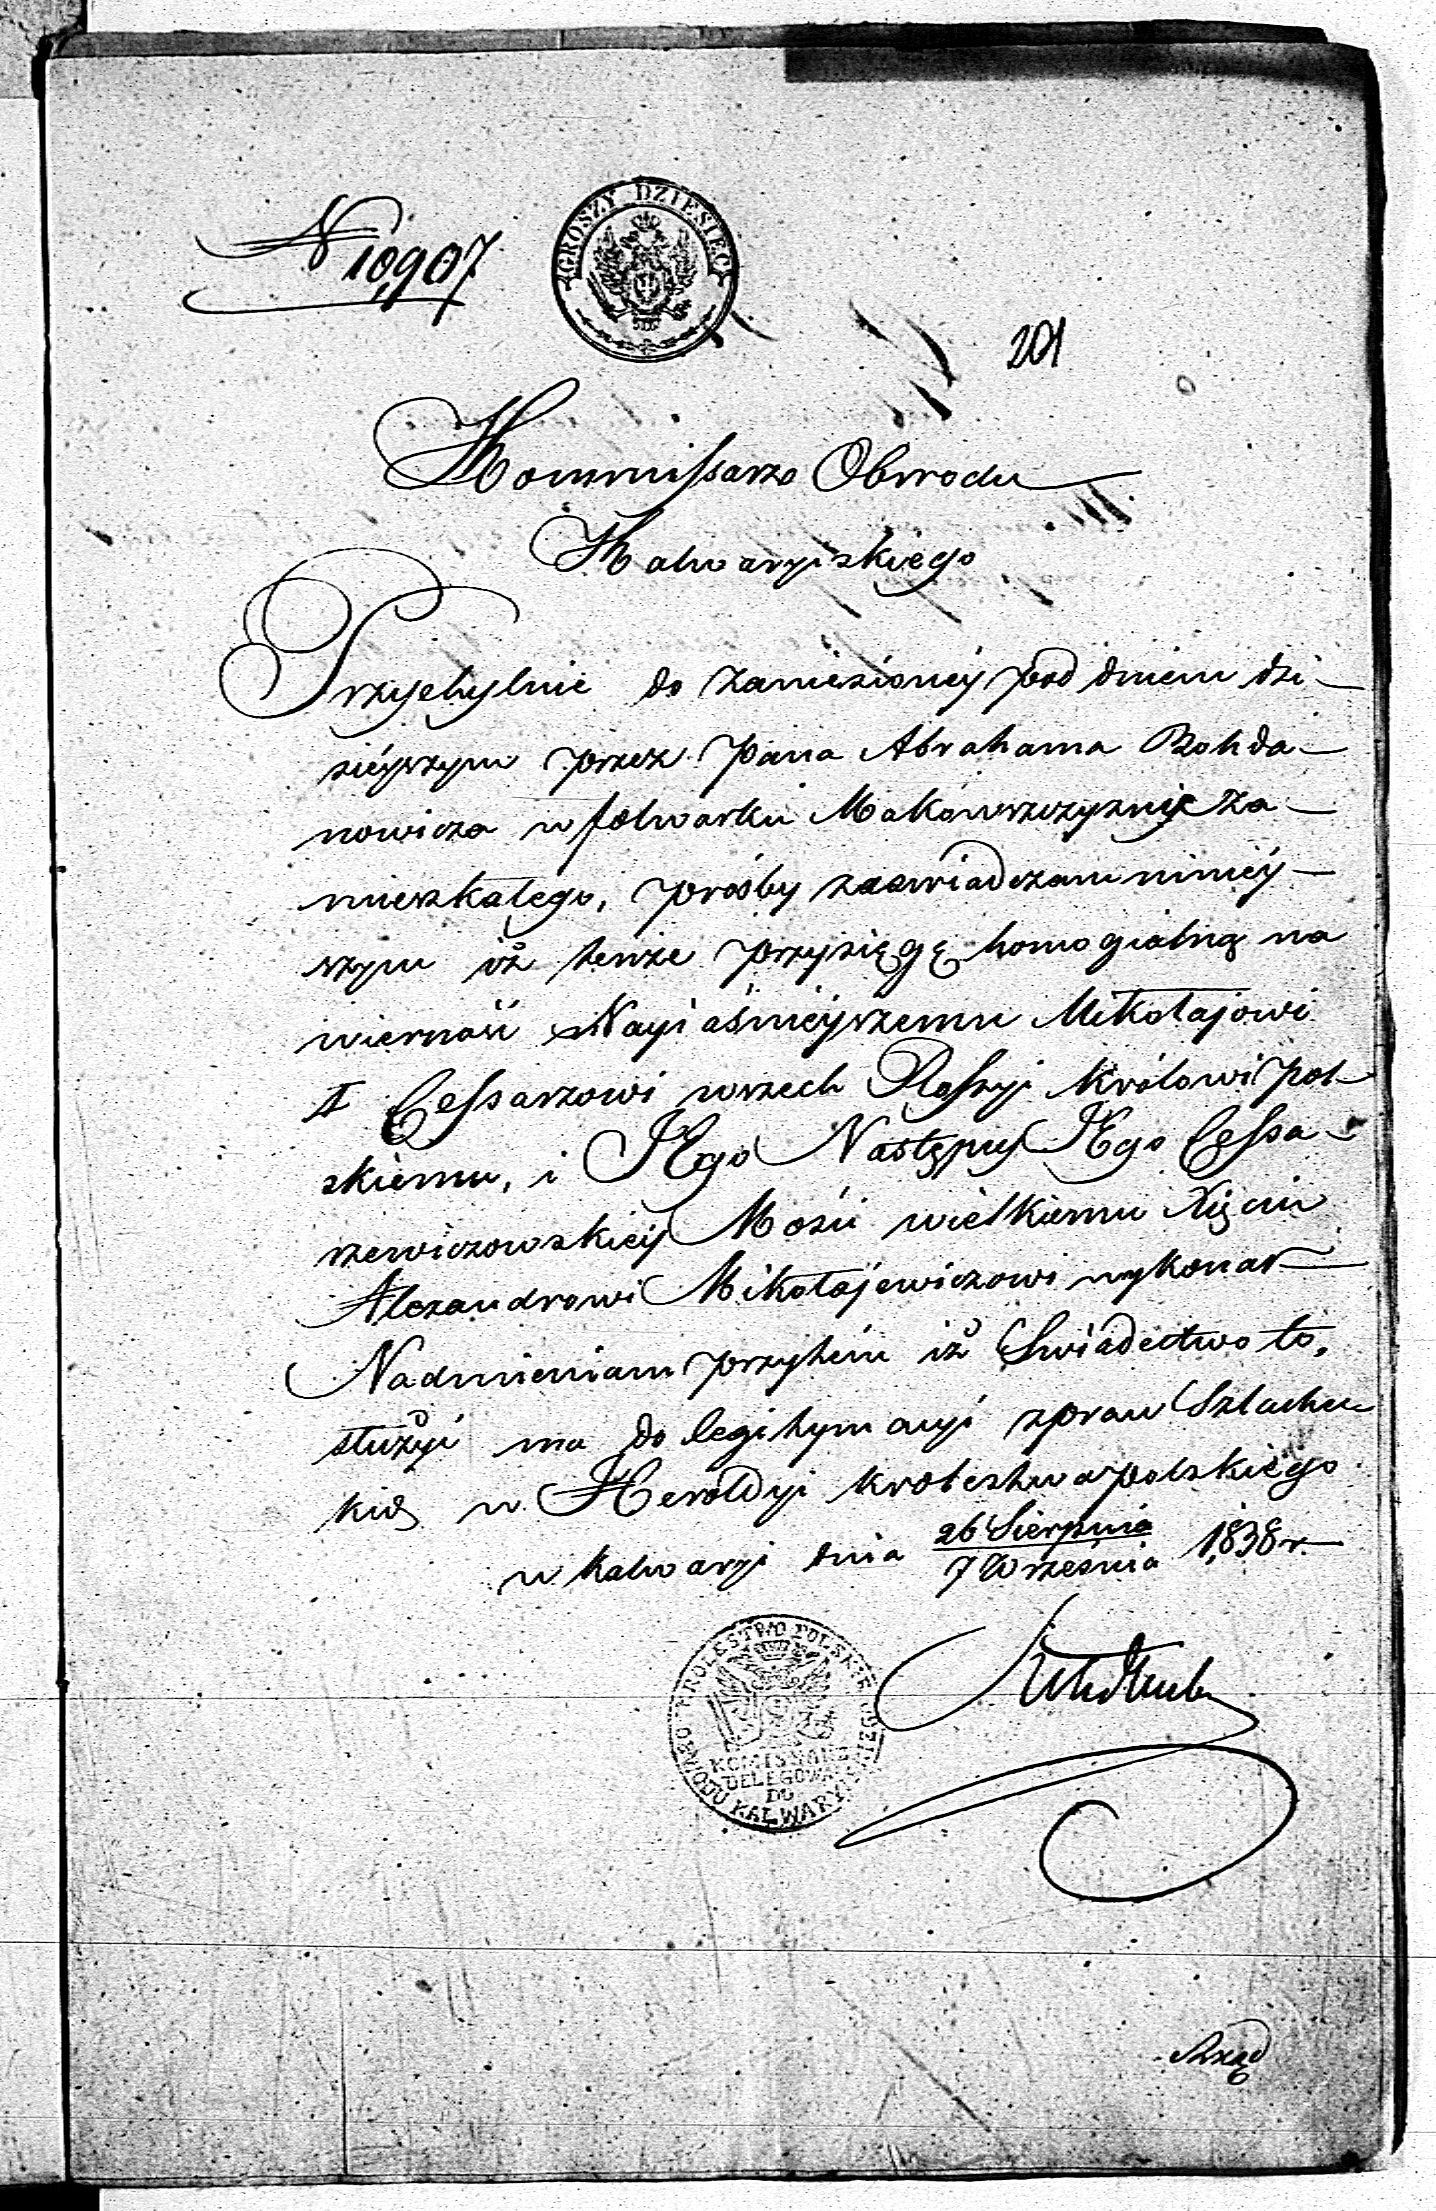 GROSZY DZIESIĘĆ
N 10,907
201
Kommissarz Obwodu
Kalwaryiskiego
Przychylnie do zaniesionéy pod dniem dzi-
siéyszym przez Pana Abrahama Bohda-
nowicza w folwarku Makowszczyznie za-
mieszkałego, prośby zaświadczam niniéy-
szym iż tenże przysięgę homogialną na
wierność Nayiaśniéyszemu Mikołajowi
I Cessarzowi wszech Rossyi Królowi Pol-
skiemu, i JEgo Następcy JEgo Cessa-
rzewiczowskiéy Mości wielkiemu Xięciu
Alexandrowi Mikołajewiczowi wykonał
Nadmieniam przytém iż Swiadectwo to,
służyć ma do legitymacyi spraw Szlachec
kich w Heroldyi królestwa polskiego
w Kalwaryi dnia 26 Sierpnia / 7 Września 1838 r.
KROLESTWO POLSKIE
KOMISSARZ
DELEGOWA
DO
OBWODU KALWARYISKIEGO
Rząd